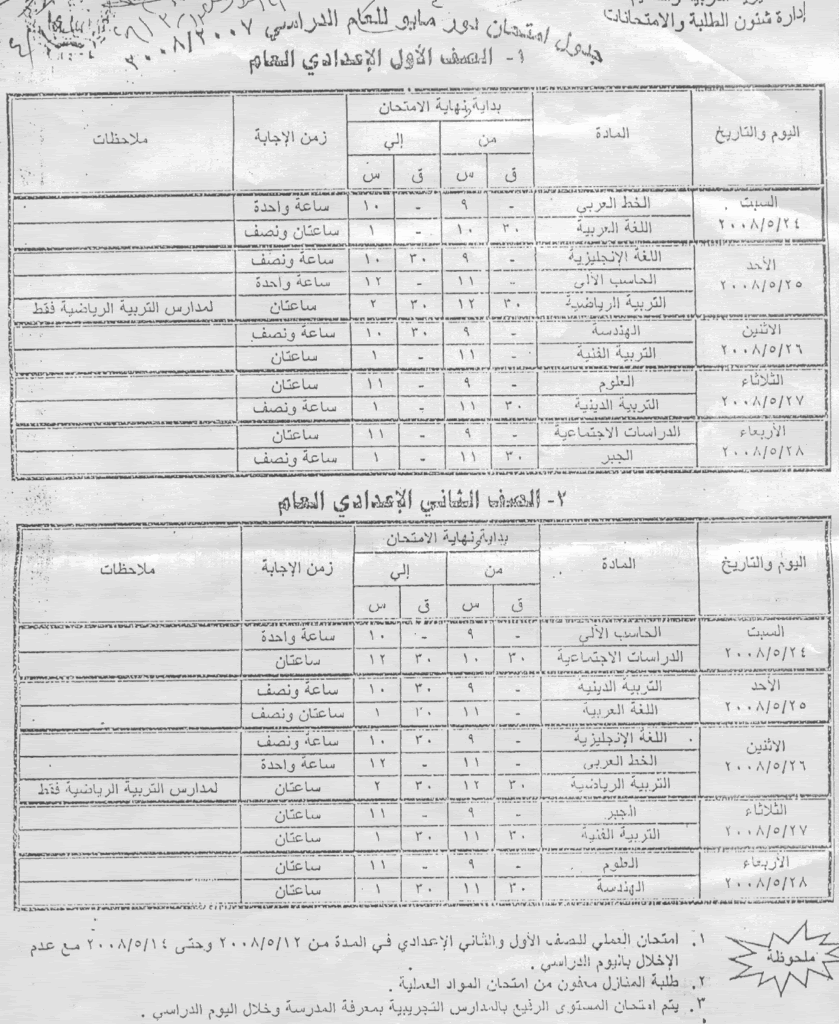 إدارة شئون الطلبة والامتحانات
جدول امتحان دور مايو للعام الدراسي ٢٠٠٨/٢٠٠٧
١- الصف الأول الإعدادي العام
اليوم والتاريخ المادة بداية ونهاية الامتحان زمن الإجابة ملاحظات
من إلي
ق س ق س
السبت ٢٠٠٨/٥/٢٤ الخط العربي - ٩ - ١٠ ساعة واحدة
اللغة العربية ٣٠ ١٠ - ١ ساعتان ونصف
الأحد ٢٠٠٨/٥/٢٥ اللغة الإنجليزية - ٩ ٣٠ ١٠ ساعة ونصف
الحاسب الألي - ١١ - ١٢ ساعة واحدة
التربية الرياضية ٣٠ ١٢ ٣٠ ٢ ساعتان لمدارس التربية الرياضية فقط
الاثنين ٢٠٠٨/٥/٢٦ الهندسة - ٩ ٣٠ ١٠ ساعة ونصف
التربية الفنية - ١١ - ١ ساعتان
الثلاثاء ٢٠٠٨/٥/٢٧ العلوم - ٩ - ١١ ساعتان
التربية الدينية ٣٠ ١١ - ١ ساعة ونصف
الأربعاء ٢٠٠٨/٥/٢٨ الدراسات الاجتماعية - ٩ - ١١ ساعتان
الجبر ٣٠ ١١ - ١ ساعة ونصف
٢- الصف الثاني الإعدادي العام
اليوم والتاريخ المادة بداية ونهاية الامتحان زمن الإجابة ملاحظات
من إلي
ق س ق س
السبت ٢٠٠٨/٥/٢٤ الحاسب الألي - ٩ - ١٠ ساعة واحدة
الدراسات الاجتماعية ٣٠ ١٠ ٣٠ ١٢ ساعتان
الأحد ٢٠٠٨/٥/٢٥ التربية الدينية - ٩ ٣٠ ١٠ ساعة ونصف
اللغة العربية - ١١ ٣٠ ١ ساعتان ونصف
الاثنين ٢٠٠٨/٥/٢٦ اللغة الإنجليزية - ٩ ٣٠ ١٠ ساعة ونصف
الخط العربى - ١١ - ١٢ ساعة واحدة
التربية الرياضية ٣٠ ١٢ ٣٠ ٢ ساعتان لمدارس التربية الرياضية فقط
الثلاثاء ٢٠٠٨/٥/٢٧ الجبر - ٩ - ١١ ساعتان
التربية الفنية ٣٠ ١١ ٣٠ ١ ساعتان
الأربعاء ٢٠٠٨/٥/٢٨ العلوم - ٩ - ١١ ساعتان
الهندسة ٣٠ ١١ ٣٠ ١ ساعتان
ملحوظة
١. امتحان العملي للصف الأول والثاني الإعدادي في المدة من ٢٠٠٨/٥/١٢ وحتى ٢٠٠٨/٥/١٤ مع عدم
الإخلال باليوم الدراسي .
٢. طلبة المنازل معفون من امتحان المواد العملية .
٣. يتم امتحان المستوى الرفيع بالمدارس التجريبية بمعرفة المدرسة وخلال اليوم الدراسي .